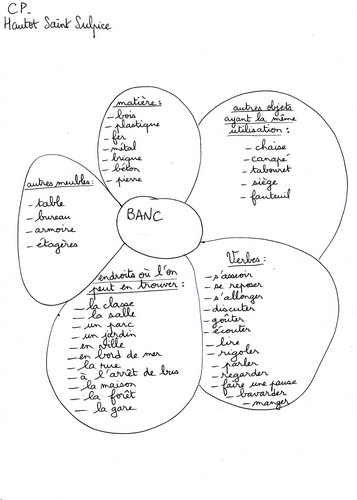 CP_
Hautot Saint Sulpice
matière :
- bois
- plastique
- fer
- métal
- brique
- béton
- pierre
autres objets
ayant la même
utilisation :
- chaise
- canapé
- tabouret
- siège
- fauteuil
autres meubles :
- table
- bureau
- armoire
- étagères
BANC
endroits où l'on
peut en trouver :
- la classe
- la salle
- un parc
- un jardin
- en ville
- en bord de mer
- la rue
- à l'arrêt de bus
- la maison
- la forêt
- la gare
Verbes :
- s'asseoir
- se reposer
- s'allonger
- discuter
- goûter
- écouter
- lire
- rigoler
- parler
- regarder
- faire une pause
- bavarder
- manger